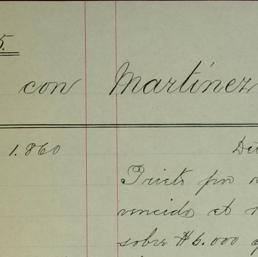 5.
con Martínez
1.860 De
Prieto por
vencido et
sobre $6.000